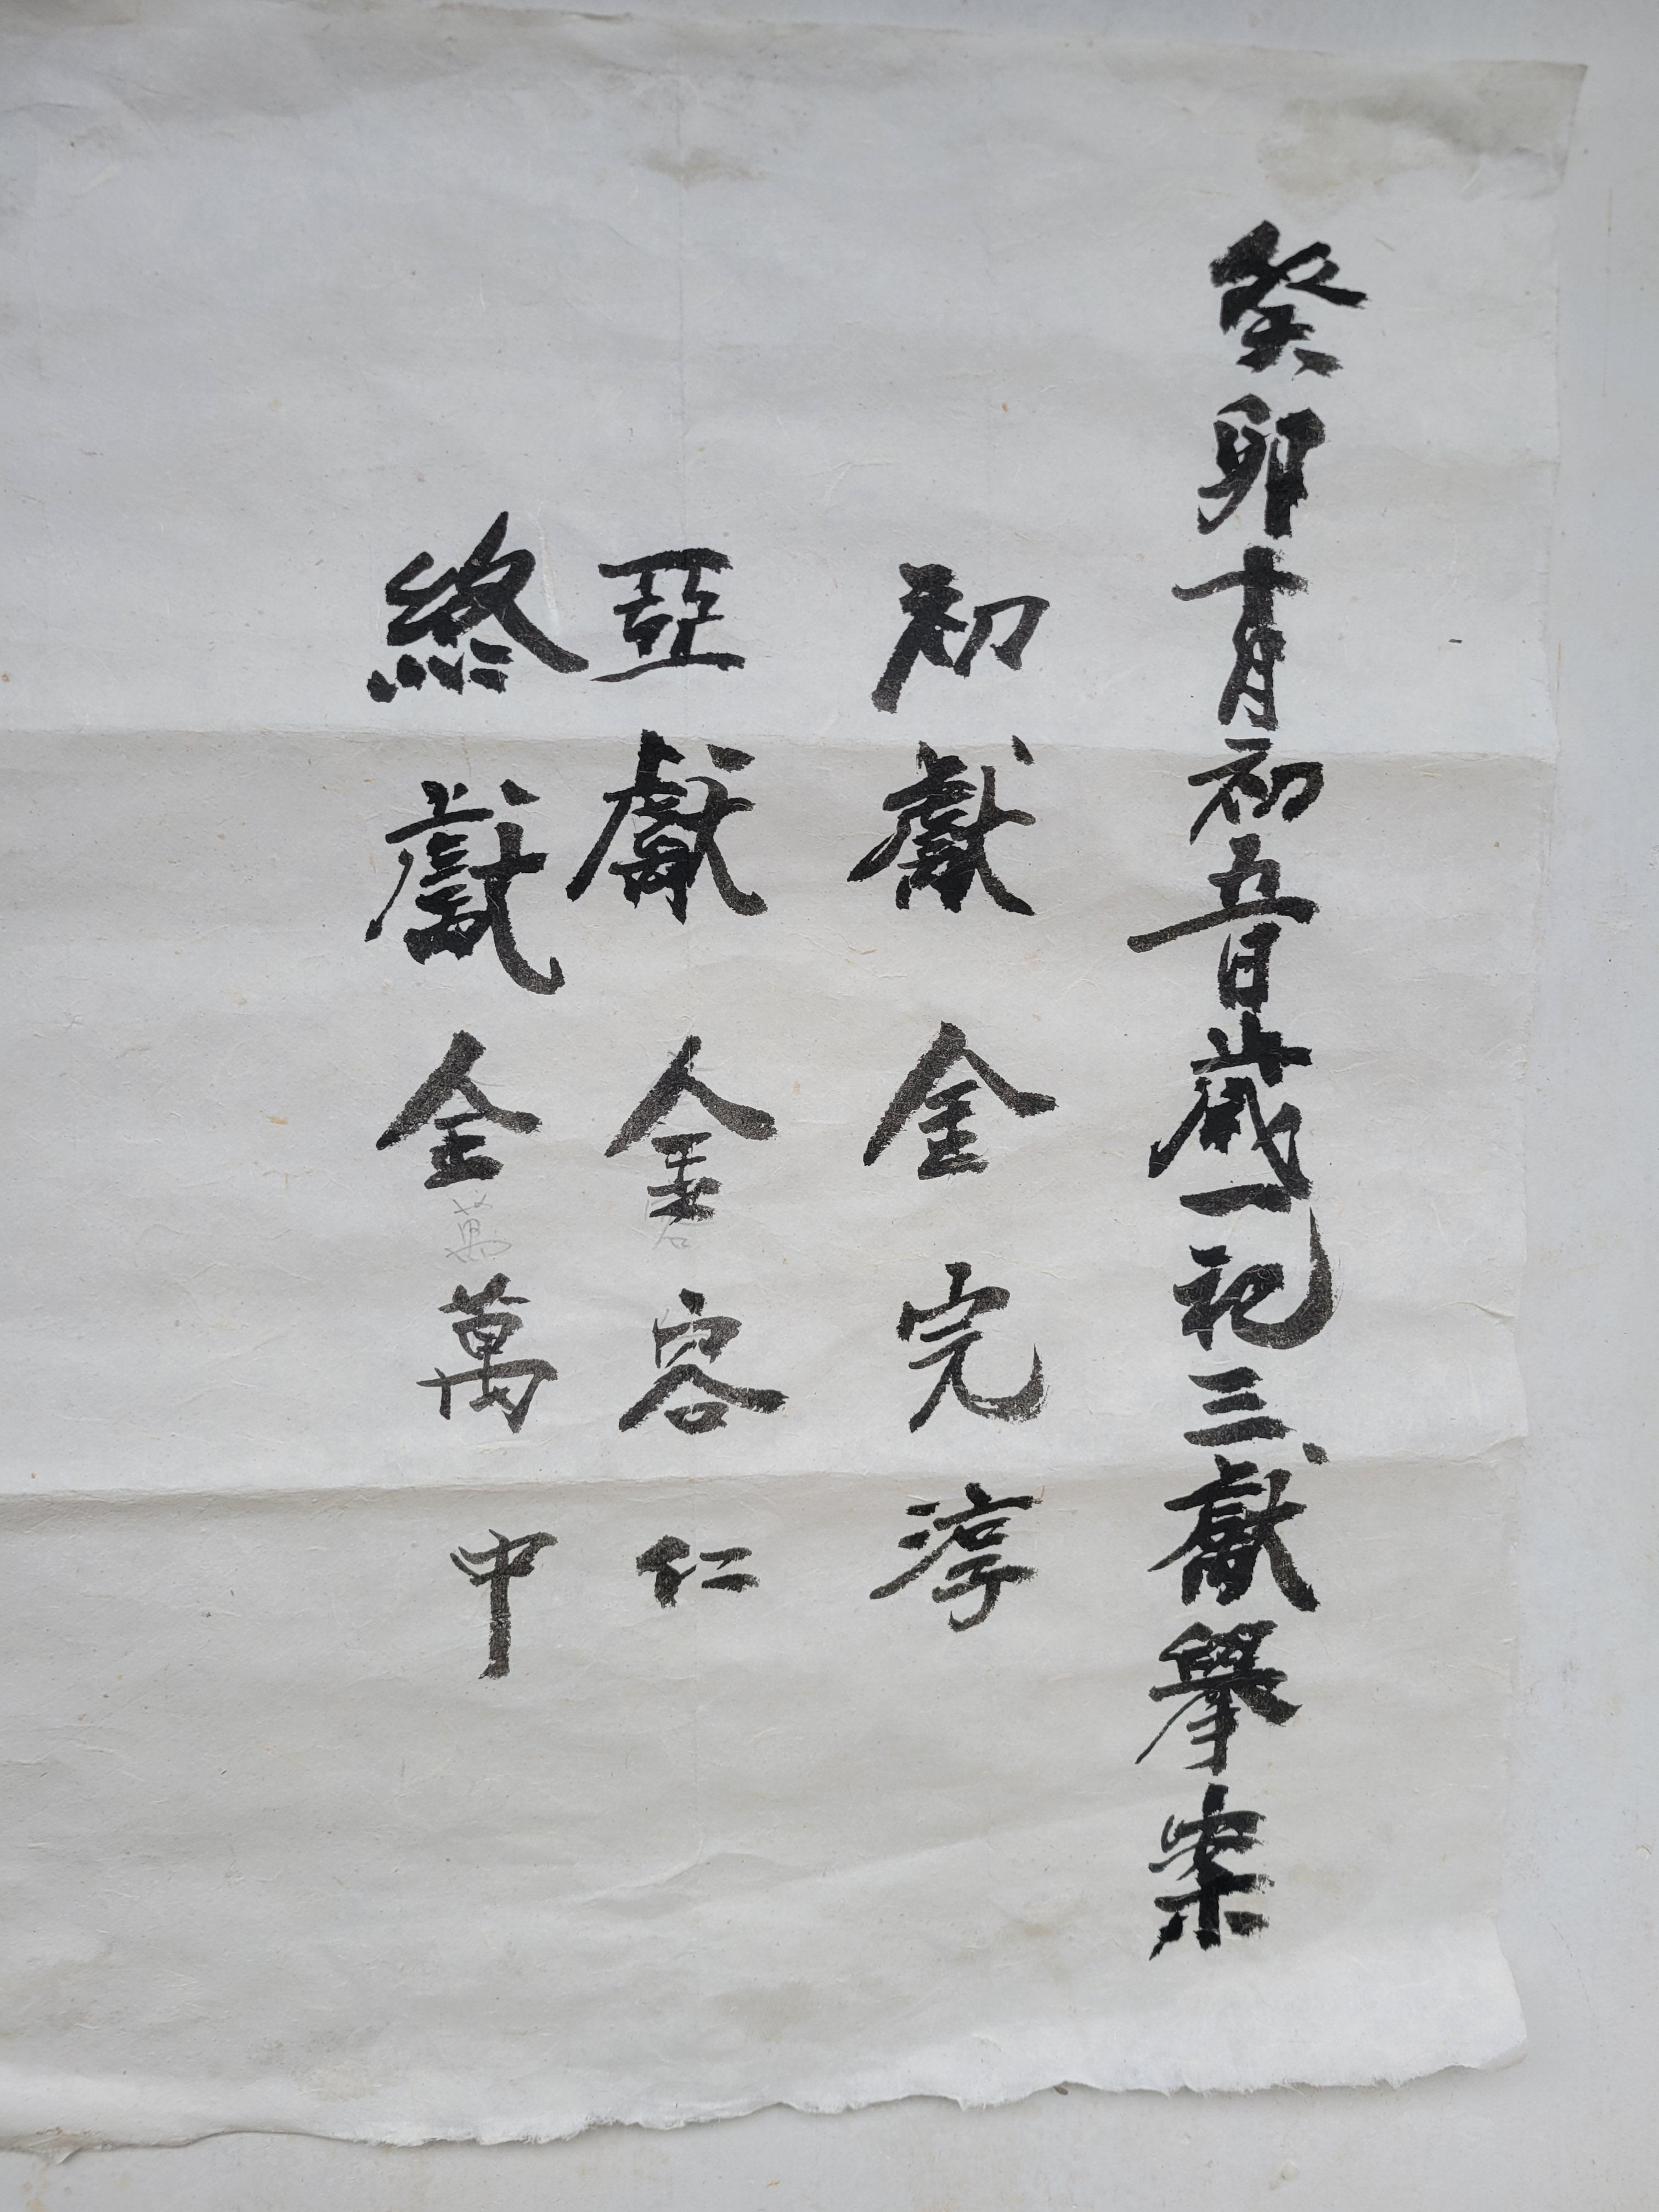 癸卯十月初五日歲一祀三獻擧案
初獻 金完淳
亞獻 金容仁
終獻 金萬中